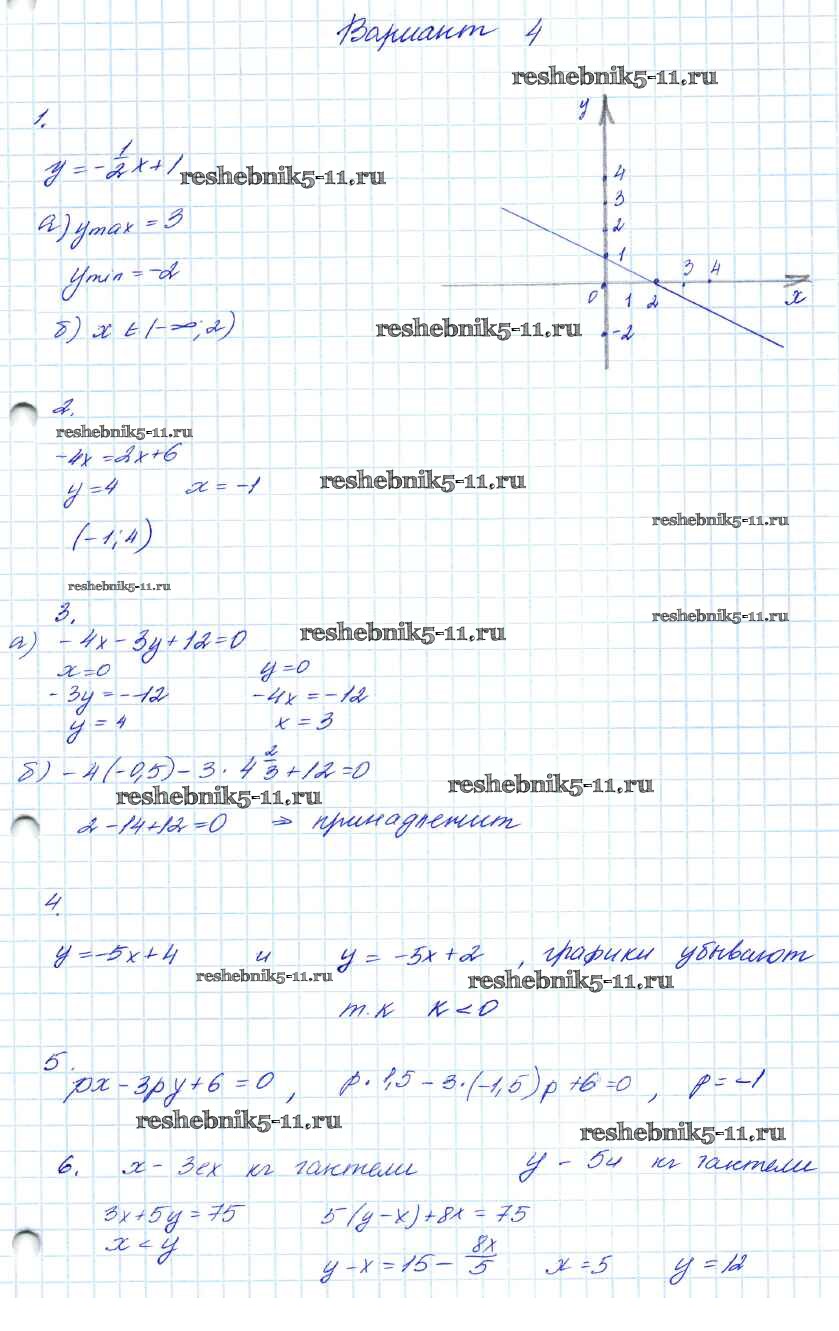 Вариант 4
reshebnik5-11.ru
1.
y = -1/2 x + 1
reshebnik5-11.ru
а) ymax = 3
ymin = -2
б) x ∈ (-∞; 2)
reshebnik5-11.ru
y
4
3
2
1
3 4
0 1 2 x
-2
2.
reshebnik5-11.ru
-4x = 2x+6
y = 4 x = -1
reshebnik5-11.ru
(-1; 4)
reshebnik5-11.ru
reshebnik5-11.ru
3.
reshebnik5-11.ru
а) -4x - 3y + 12 = 0
reshebnik5-11.ru
x=0 y=0
-3y = -12 -4x = -12
y = 4 x = 3
б) -4(-0,5) - 3 · 4 2/3 + 12 = 0
reshebnik5-11.ru
reshebnik5-11.ru
2 - 14 + 12 = 0 ⇒ принадлежит
4.
y = -5x + 4 и y = -5x + 2 , графики убывают
reshebnik5-11.ru
reshebnik5-11.ru
т.к K < 0
5.
px - 3py + 6 = 0 , p · 1,5 - 3 · (-1,5) p + 6 = 0 , p = -1
reshebnik5-11.ru
reshebnik5-11.ru
6. x - 3ех кг гантели y - 5и кг гантели
3x + 5y = 75 5(y-x) + 8x = 75
x < y
y - x = 15 - 8x/5 x = 5 y = 12